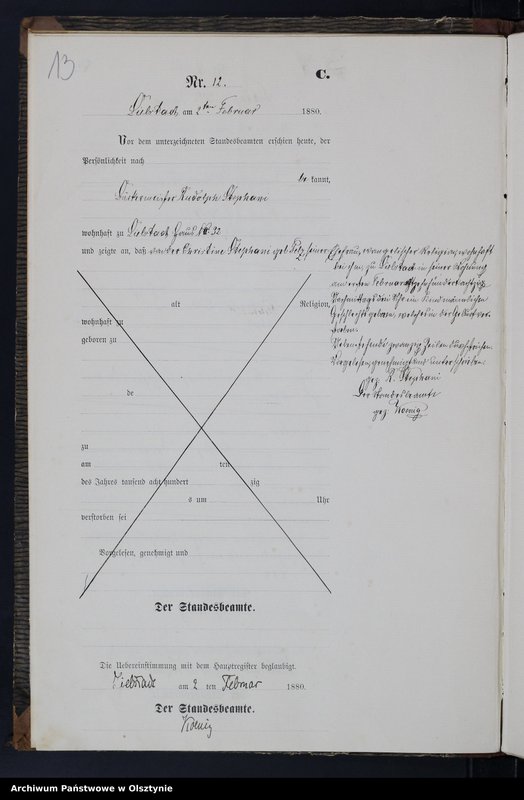 13
C.
Nr. 12.
Liebstadt, am 2ten Februar 1880.
Vor dem unterzeichneten Standesbeamten erschien heute, der
Persönlichkeit nach
be kannt,
Rudolph Stephani
wohnhaft zu Liebstadt Haus No 32
und zeigte an, daß von der Christine Stephani geb. seiner Ehefrau, evangelischer Religion, wohnhaft
bei ihm, zu Liebstadt in seiner Wohnung
am ersten Februar
Nachmittags drei Uhr ein Kind männlichen
Geschlechts geboren, welches in der Geburt ver-
storben.
Nebenstehende zwanzig Zeilen durchstrichen.
Vorgelesen, genehmigt und unterschrieben
gez. R. Stephani
Der Standesbeamte
gez. Koenig
alt Religion,
wohnhaft zu
geboren zu
de
zu
am ten
des Jahres tausend acht hundert zig
s um Uhr
verstorben sei
Vorgelesen, genehmigt und
Der Standesbeamte.
Die Uebereinstimmung mit dem Hauptregister beglaubigt.
Liebstadt am 2 ten Februar 1880.
Der Standesbeamte.
Koenig
Archiwum Państwowe w Olsztynie